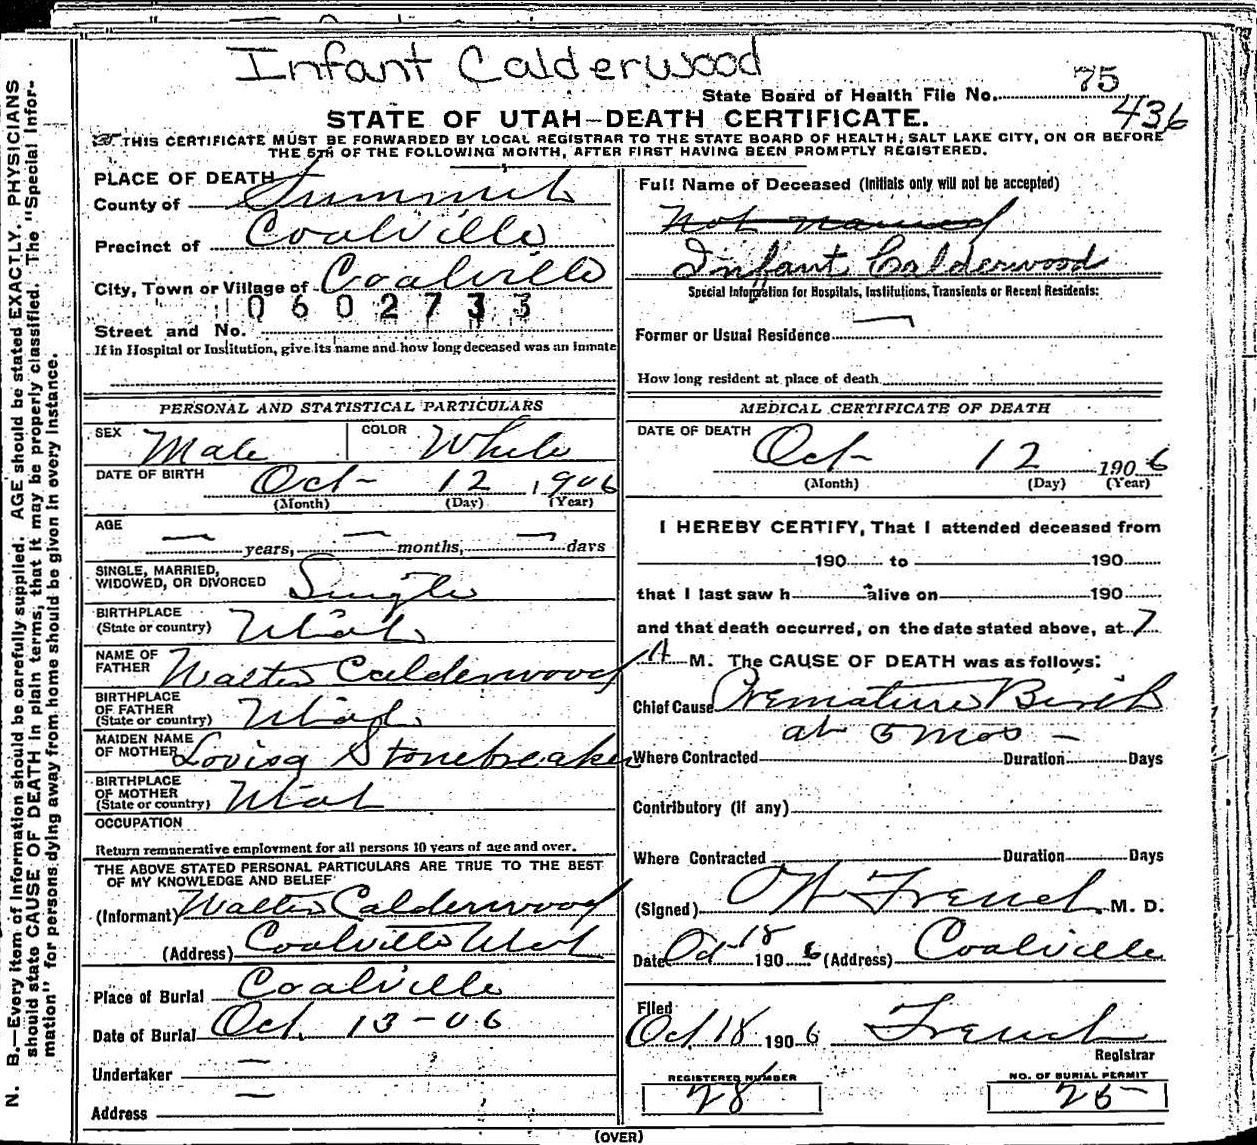 Infant Calderwood
75
State Board of Health File No.
436
STATE OF UTAH-DEATH CERTIFICATE.
THIS CERTIFICATE MUST BE FORWARDED BY LOCAL REGISTRAR TO THE STATE BOARD OF HEALTH, SALT LAKE CITY, ON OR BEFORE
THE 5TH OF THE FOLLOWING MONTH, AFTER FIRST HAVING BEEN PROMPTLY REGISTERED.
PLACE OF DEATH
County of Summit
Precinct of Coalville
City, Town or Village of Coalville
0602733
Street and No.
If in Hospital or Institution, give its name and how long deceased was an inmate
PERSONAL AND STATISTICAL PARTICULARS
SEX Male COLOR White
DATE OF BIRTH Oct- 12 1906
(Month) (Day) (Year)
AGE
— years, — months, — days
SINGLE, MARRIED,
WIDOWED, OR DIVORCED Single
BIRTHPLACE
(State or country) Utah
NAME OF
FATHER Walter Calderwood
BIRTHPLACE
OF FATHER
(State or country) Utah
MAIDEN NAME
OF MOTHER Lovisa Stonebreaker
BIRTHPLACE
OF MOTHER
(State or country) Utah
OCCUPATION
Return remunerative employment for all persons 10 years of age and over.
THE ABOVE STATED PERSONAL PARTICULARS ARE TRUE TO THE BEST
OF MY KNOWLEDGE AND BELIEF
(Informant) Walter Calderwood
(Address) Coalville Utah
Place of Burial Coalville
Date of Burial Oct. 13-06
Undertaker —
Address —
Full Name of Deceased (Initials only will not be accepted)
Not named
Infant Calderwood
Special Information for Hospitals, Institutions, Transients or Recent Residents:
Former or Usual Residence
How long resident at place of death
MEDICAL CERTIFICATE OF DEATH
DATE OF DEATH Oct- 12 1906
(Month) (Day) (Year)
I HEREBY CERTIFY, That I attended deceased from
190 to 190
that I last saw h alive on 190
and that death occurred, on the date stated above, at 7
A M. The CAUSE OF DEATH was as follows:
Chief Cause Premature Birth
at 5 mos -
Where Contracted Duration Days
Contributory (if any)
Where Contracted Duration Days
(Signed) French M. D.
Date Oct-18 1906 (Address) Coalville
Filed
Oct. 18 1906 French
Registrar
REGISTERED NUMBER NO. OF BURIAL PERMIT
28 25
(OVER)
N. B.—Every item of information should be carefully supplied. AGE should be stated EXACTLY. PHYSICIANS
should state CAUSE OF DEATH in plain terms, that it may be properly classified. The "Special Infor-
mation" for persons dying away from home should be given in every instance.